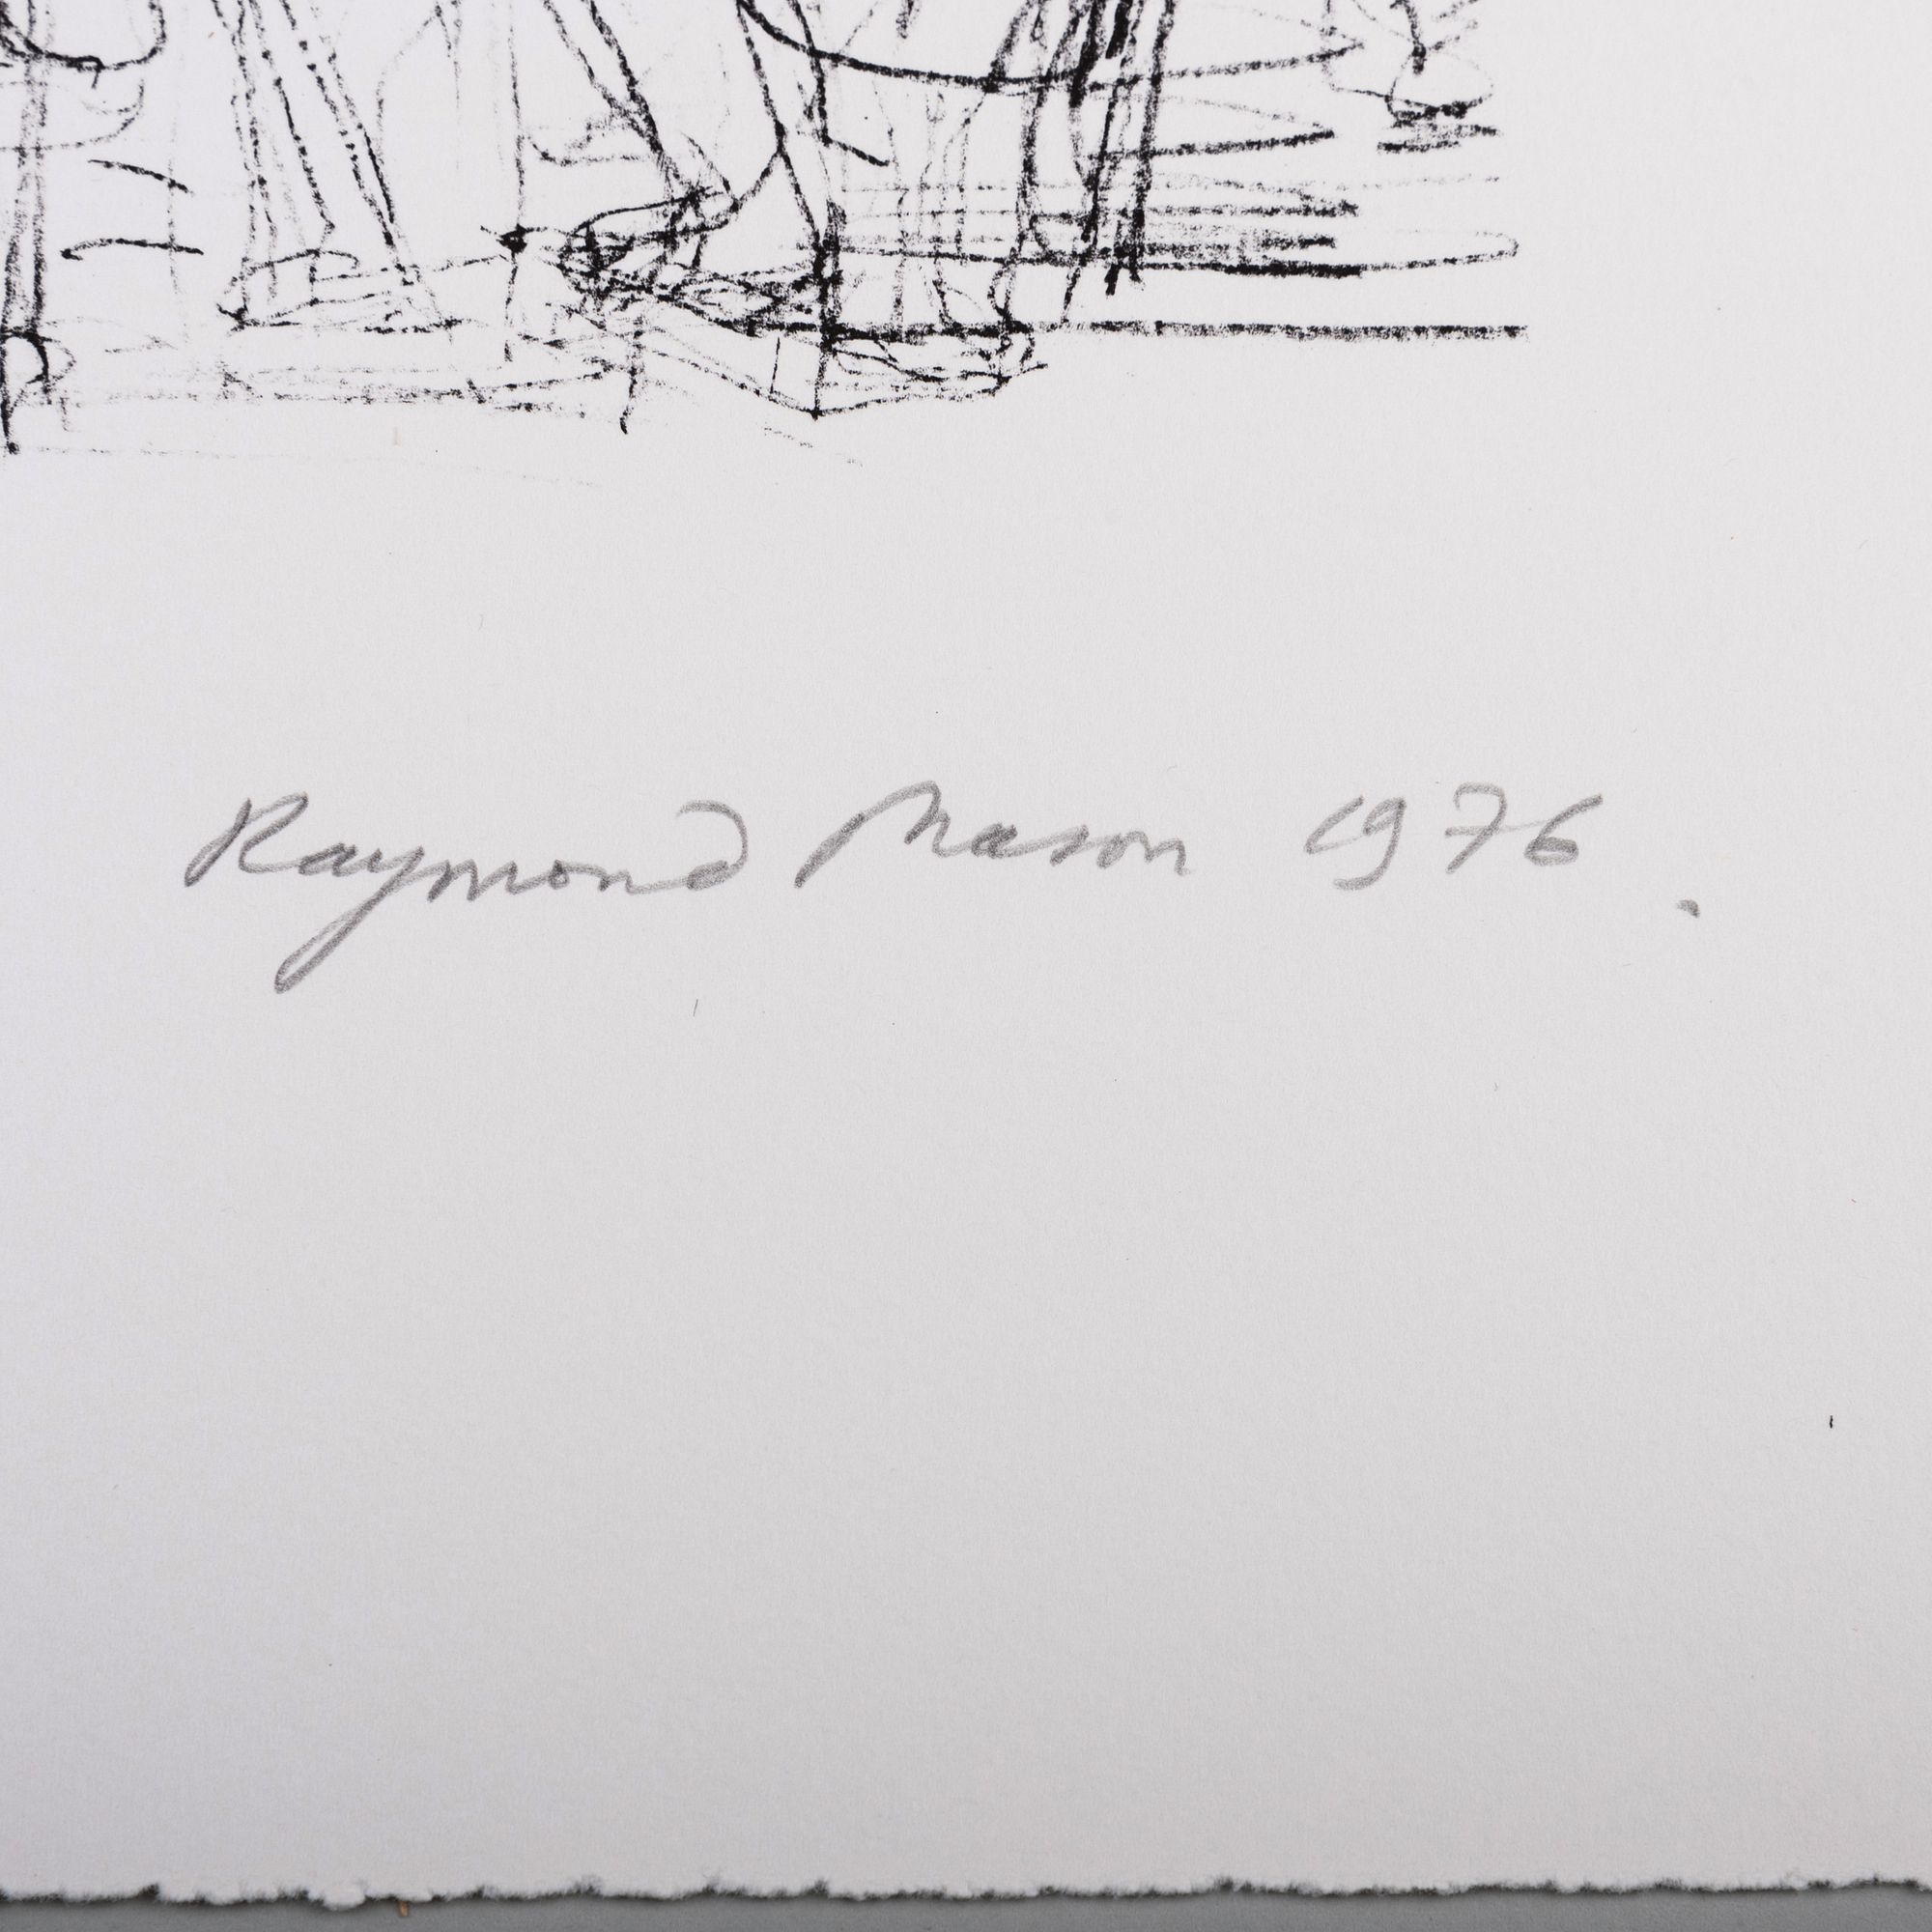 Raymond Mason 1976.